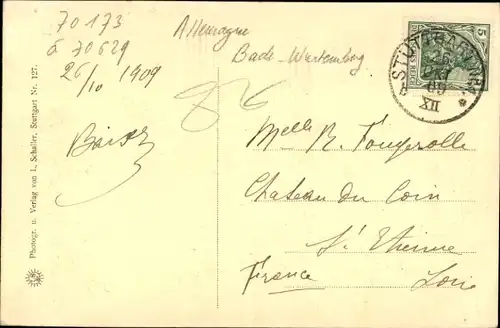 70 173
à 70629
26/10 1909
Allemagne
Bade-Wurtemberg
5
STUTTGART
26
OKT
09
Melle R. Fougerolle
Chateau du Coin
St Etienne
France Loire
Photogr. u. Verlag von L. Schaller, Stuttgart Nr. 127.